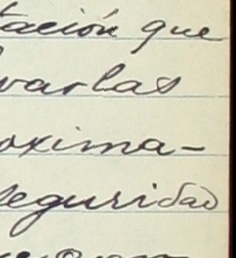 tación que
varlas
oxima-
seguridad